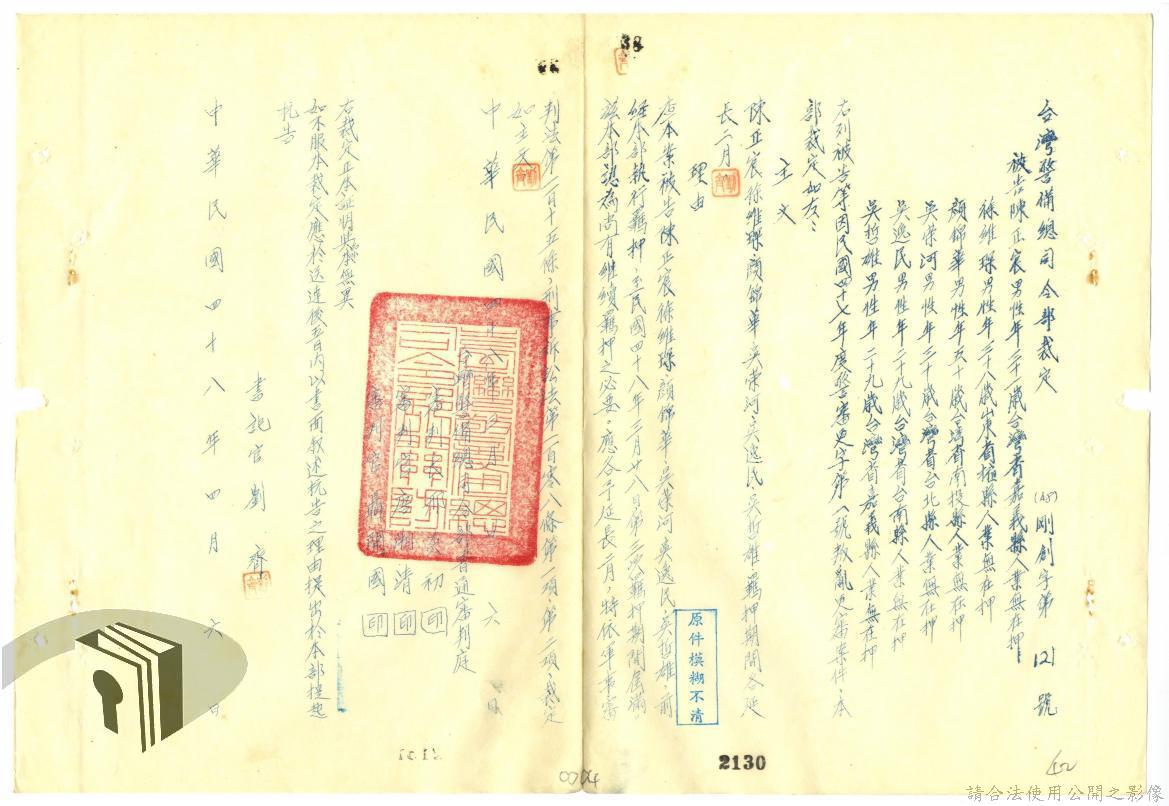 38
台灣警備總司令部裁定
(48)剛創字第121號
被告陳正宸男性年三十一歲台灣省嘉義縣人業無在押
徐維琛男性年三十八歲山東省縣人業無在押
顏錦華男性年五十歲台灣省南投縣人業無在押
吳榮河男性年三十歲台灣省台北縣人業無在押
吳逸民男性年二十九歲台灣省台南縣人業無在押
吳哲雄男性年二十九歲台灣省嘉義縣人業無在押
右列被告等因民國四十七年度警審更字第八號叛亂更審案件本
部裁定如左：
主文
陳正宸徐維琛顏錦華吳榮河吳逸民吳哲雄羈押期間各延
長二月
理由
查本案被告陳正宸徐維琛顏錦華吳榮河吳逸民吳哲雄前
經本部執行羈押，至民國四十八年三月廿八日第三次羈押期間屆滿，
茲本部認為尚有繼續羈押之必要。應各予延長二月，特依軍事審
判法第一百十五條，刑事訴訟法第一百零八條第一項第二項，裁定
如主文
中華民國四十八年 月 六日
台灣警備總司令部普通審判庭
初 印
清 印
審判官 國 印
右裁定正本証明與原本無異
如不服本裁定應於送達後五日內以書面敘述抗告之理由提出於本部提起
抗告
書記官劉 齊
中華民國四十八年四月六日
原件模糊不清
2130
請合法使用公開之影像